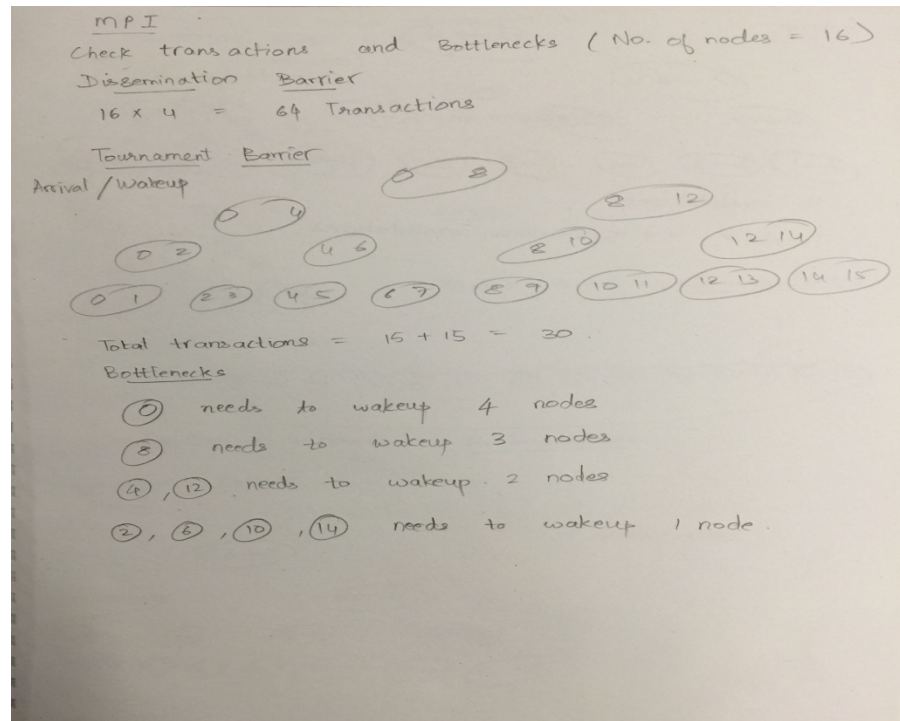 MPI
Check transactions and Bottlenecks (No. of nodes = 16)
Dissemination Barrier
16 x 4 = 64 Transactions
Tournament Barrier
Arrival / Wakeup
0 8
0 4 8 12
0 2 4 6 8 10 12 14
0 1 2 3 4 5 6 7 8 9 10 11 12 13 14 15
Total transactions = 15 + 15 = 30.
Bottlenecks
0 needs to wakeup 4 nodes
8 needs to wakeup 3 nodes
4, 12 needs to wakeup 2 nodes
2, 6, 10, 14 needs to wakeup 1 node.